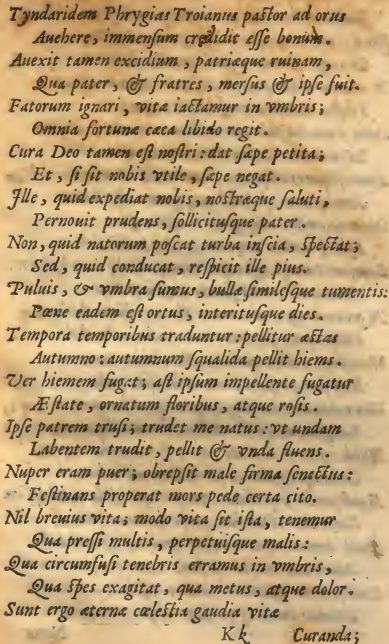 Tyndaridem Phrygias Troianus paſtor ad orus
Auehere, immenſum credidit eſſe bonum.
Auexit tamen excidium, patriæque ruinam,
Qua pater, & fratres, merſus & ipſe fuit.
Fatorum ignari, vitæ iactamur in vmbris;
Omnia fortunæ cæca libido regit.
Cura Deo tamen eſt noſtri: dat ſæpe petita;
Et, ſi ſit nobis vtile, ſæpe negat.
Ille, quid expediat nobis, noſtræque ſaluti,
Pernouit prudens, ſollicituſque pater.
Non, quid natorum poſcat turba inſcia, ſpectat;
Sed, quid conducat, reſpicit ille pius.
Puluis, & vmbra ſumus, bullæ ſimileſque tumentis:
Pœne eadem eſt ortus, interituſque dies.
Tempora temporibus traduntur: pellitur æſtas
Autumno: autumnum ſqualida pellit hiems.
Ver hiemem fugat; aſt ipſum impellente fugatur
Æſtate, ornatum floribus, atque roſis.
Ipſe patrem truſi; trudet me natus: vt undam
Labentem trudit, pellit & vnda fluens.
Nuper eram puer; obrepſit male firma ſenectus:
Feſtinans properat mors pede certa cito.
Nil breuius vita; modo vita ſit iſta, tenemur
Qua preſſi multis, perpetuiſque malis:
Qua circumfuſi tenebris erramus in vmbris,
Qua ſpes exagitat, qua metus, atque dolor.
Sunt ergo æternæ cœleſtia gaudia vitæ
K k Curanda;